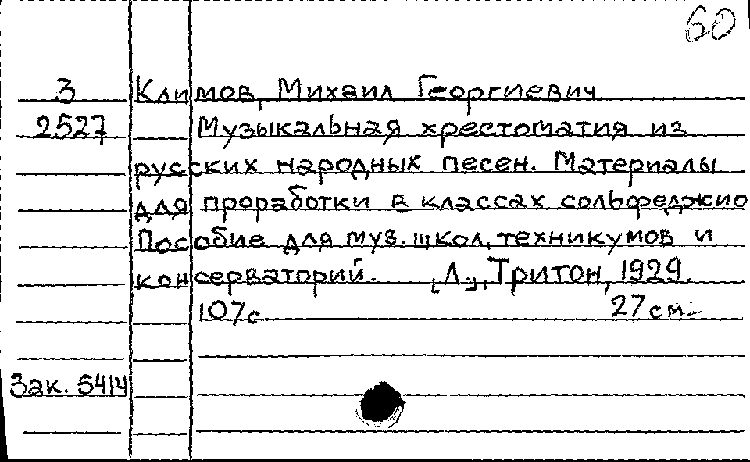 60
3 Климов, Михаил Георгиевич
2527 Музыкальная хрестоматия из
русских народных песен. Материалы
для проработки в классах сольфеджио
Пособие для муз. школ, техникумов и
консерваторий. [Л.], Тритон, 1929.
107с. 27см.
Зак. 5414